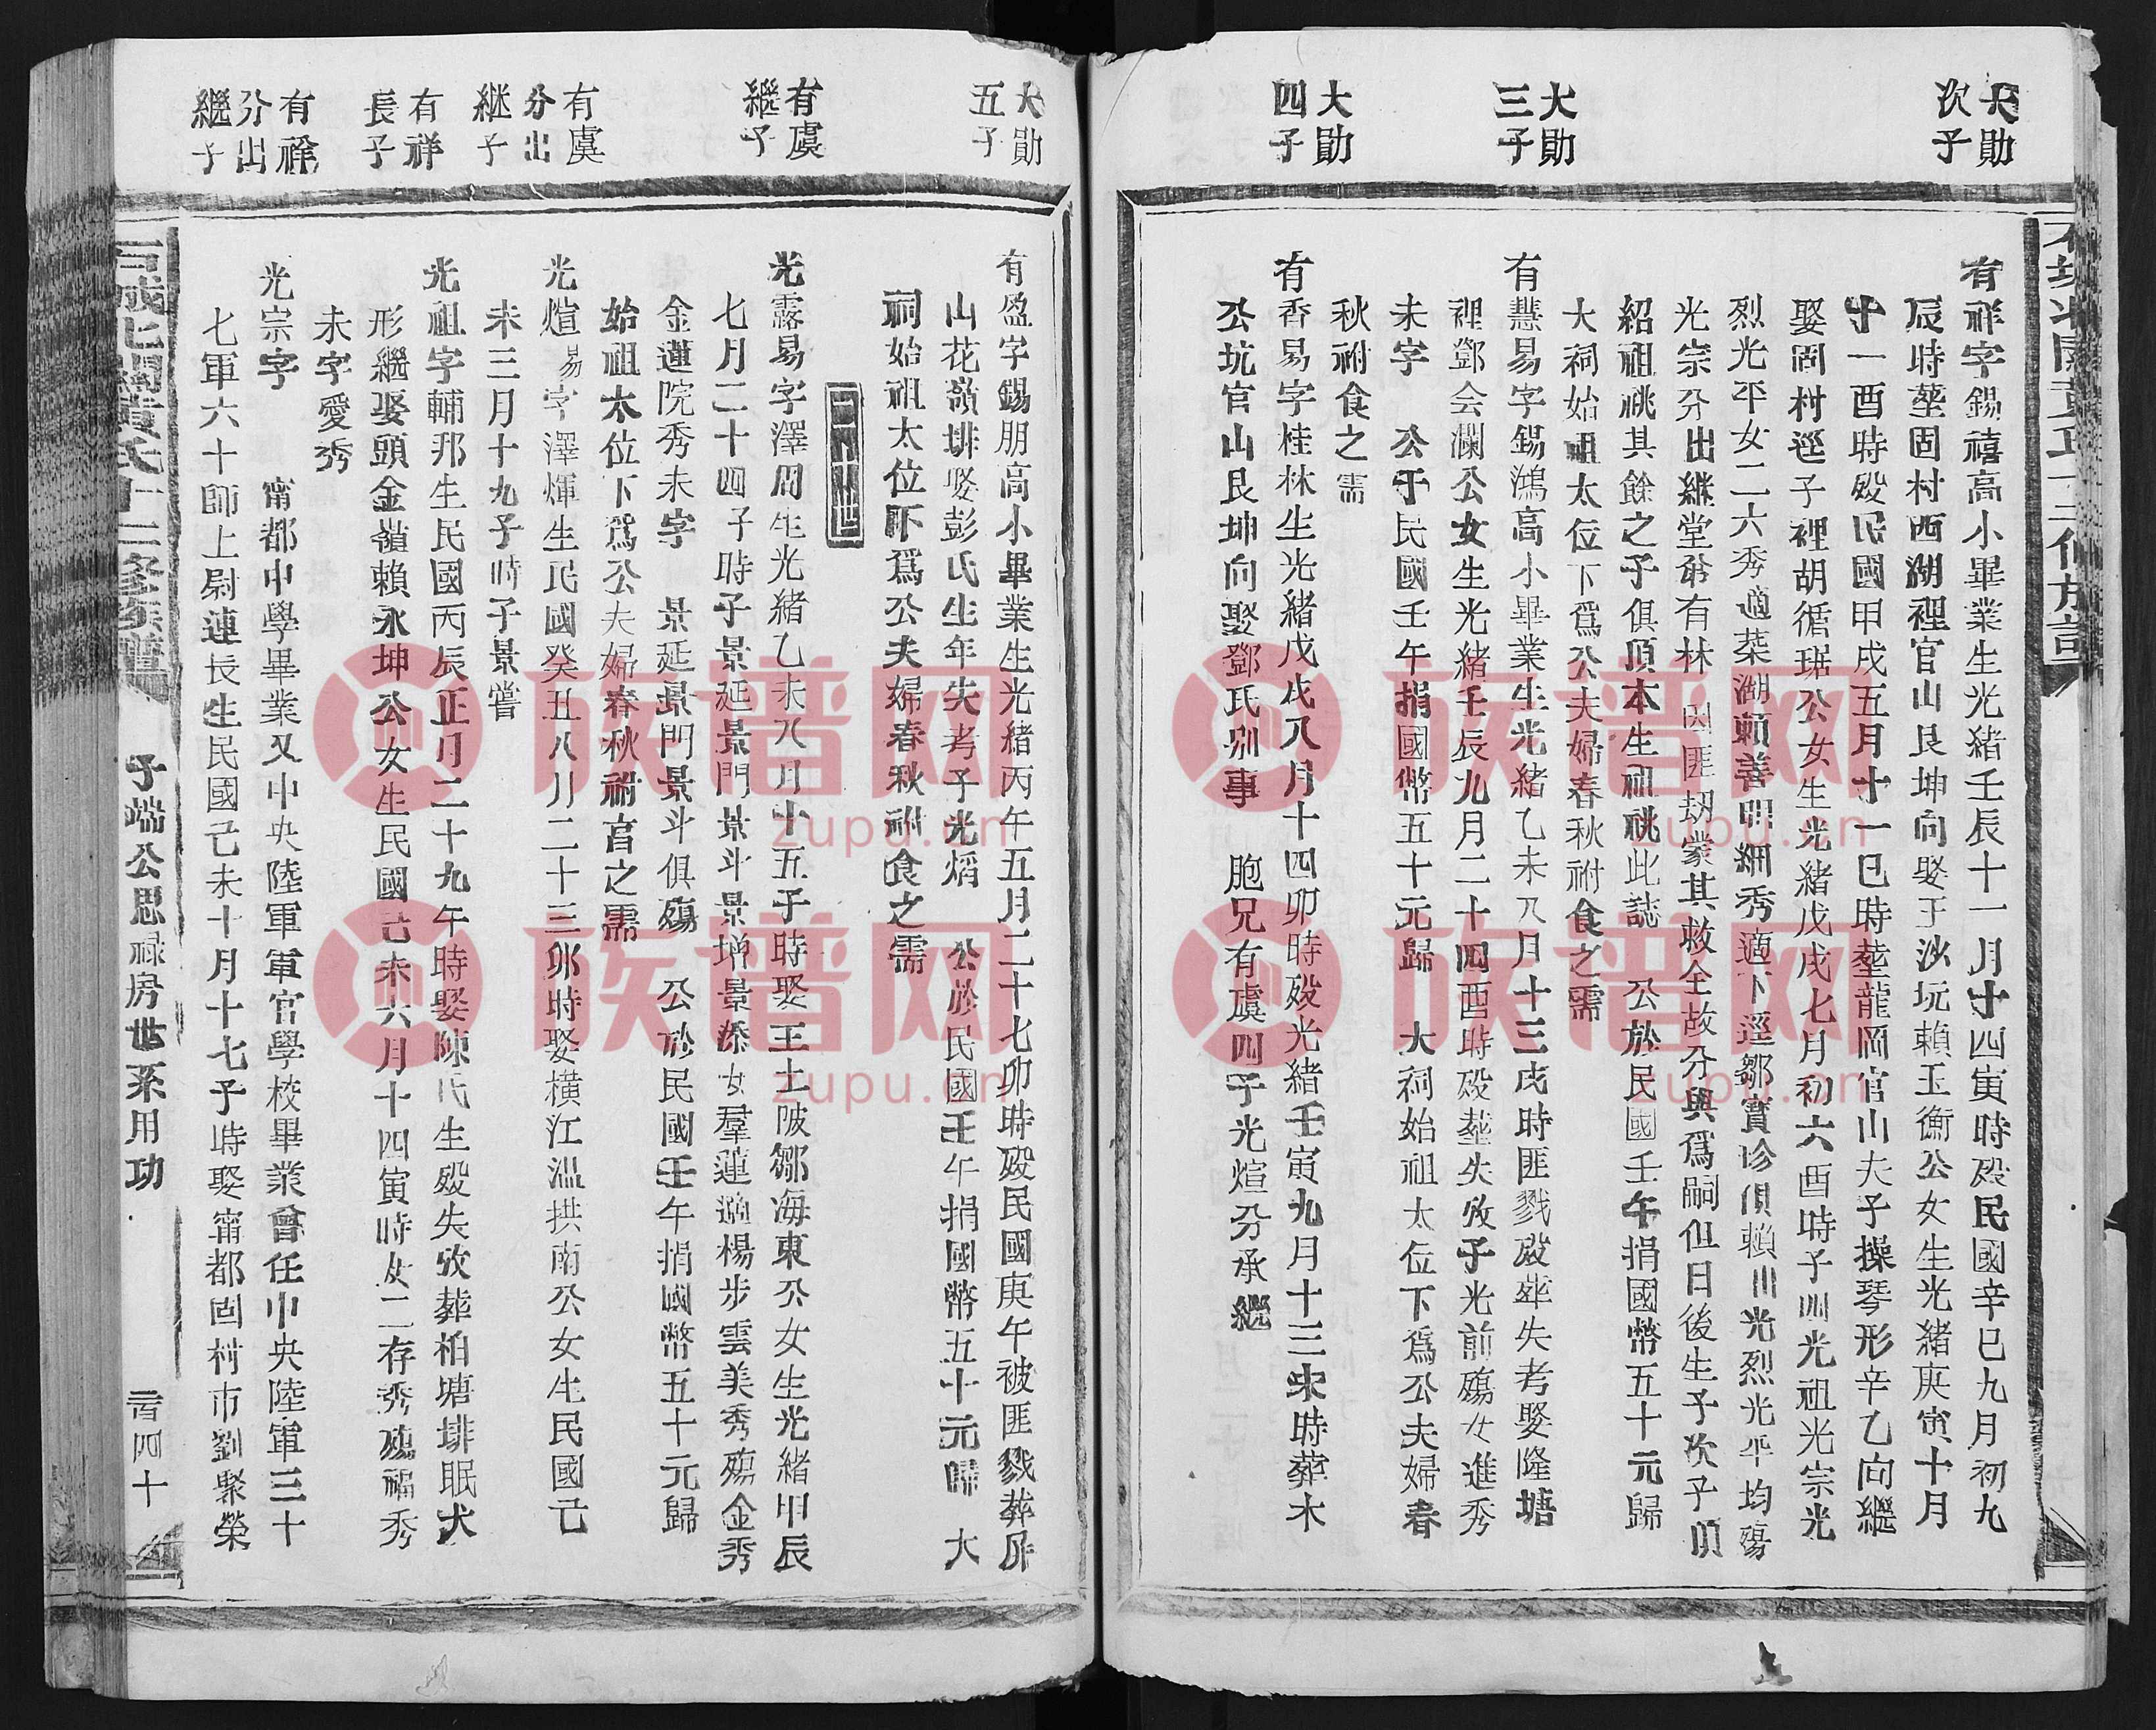 大勛
次子
有祥字錫禧高小畢業生光緒壬辰十一月十四寅時歿民國辛巳九月初九
辰時塟固村西湖裡官山艮坤向娶于沙坑賴玉衡公女生光緒庚寅十月
十一酉時歿民國甲戌五月十一巳時塟龍岡官山夫子操琴形辛乙向繼
娶固村逕子裡胡循琚公女生光緒戊戌七月初六酉時子四光祖光宗光
烈光平女二六秀適葉湖賴善明網秀適下逕鄒賓珍俱賴出光烈光平均殤
光宗分出継堂爷有林 因匪刧蒙其救全故分與爲嗣但日後生子次子頂
紹祖祧其餘之子俱頂本生祖祧此誌 公於民國壬午捐國幣五十元歸
大祠始祖太位下爲公夫婦春秋祔食之需
大勛
三子
有慧易字錫鴻高小畢業生光緒乙未八月十三戌時匪戮歿塟失考娶隆塘
裡鄧会瀾公女生光緒壬辰九月二十四酉時歿塟失攷子光前殤女進秀
未字 公于民國壬午捐國幣五十元歸 大祠始祖太位下爲公夫婦春
秋祔食之需
大勛
四子
有香易字桂林生光緒戊戌八月十四卯時歿光緒壬寅九月十三未時葬木
公坑官山艮坤向娶鄧氏别事 胞兄有虞四子光煊分承繼
大勛
五子
有盈字錫朋高小畢業生光緒丙午五月二十七卯時歿民國庚午被匪戮葬屏
山花嶺排娶彭氏生年失考子光熖 公於民國壬午捐國幣五十元歸 大
祠始祖太位下爲公夫婦春秋祔食之需
二世
有虞
繼子
光露易字澤周生光緒乙未八月十五子時娶王土陂鄒海東公女生光緒甲辰
七月二十四子時子景延景門景斗景增景添女羣蓮適楊步雲美秀殤金秀
金蓮院秀未字 景延景門景斗俱殤 公於民國壬午捐國幣五十元歸
始祖太位下爲公夫婦春秋祔食之需
有虞
分出
継子
光煊易字澤煇生民國癸丑八月二十三卯時娶橫江溫拱南公女生民國己
未三月十九子時子景嘗
有祥
長子
光祖字輔邦生民國丙辰正月二十九午時娶陳氏生歿失攷葬柏塘排眠犬
形繼娶頭金嶺賴永坤公女生民國己未六月十四寅時女二存秀殤福秀
未字愛秀
有祥
分出
繼子
光宗字 甯都中學畢業又中央陸軍軍官學校畢業曾任中央陸軍三十
七軍六十師上尉連長生民國己未十月十七子時娶甯都固村市劉聚榮
石城北關黃氏十二修族譜
子端公思禄房世系用功
四十
族谱网
zupu.cn
族谱网
zupu.cn
族谱网
zupu.cn
族谱网
zupu.cn